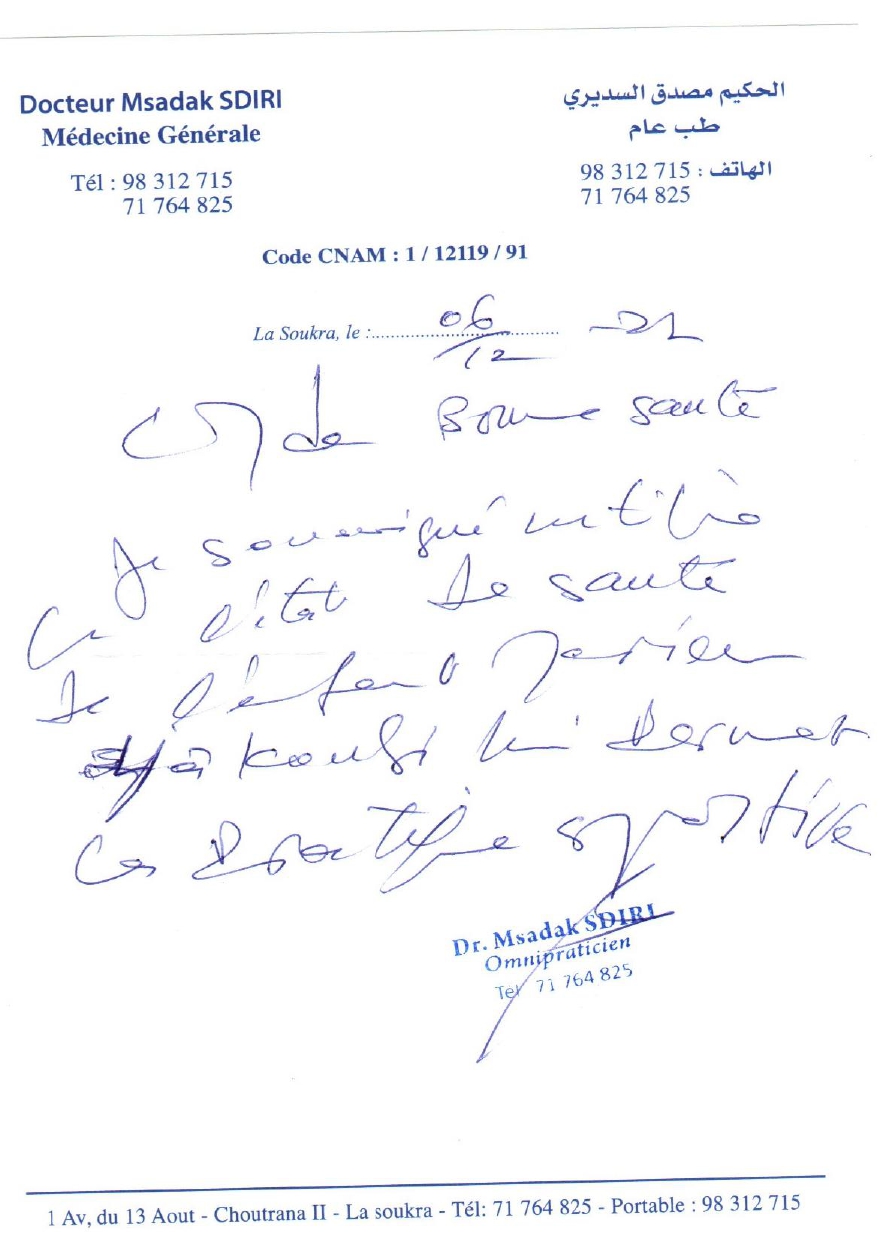 Docteur Msadak SDIRI
Médecine Générale
Tél : 98 312 715
71 764 825
الحكيم مصدق السديري
طب عام
الهاتف : 98 312 715
71 764 825
Code CNAM : 1 / 12119 / 91
La Soukra, le : 06/12 -21
de Bonne santé
Je soussigné certifie
l'état de santé
de l'enfant
lui Permet
la Pratique sportive
Dr. Msadak SDIRI
Omnipraticien
Tel 71 764 825
1 Av, du 13 Aout - Choutrana II - La soukra - Tél: 71 764 825 - Portable : 98 312 715